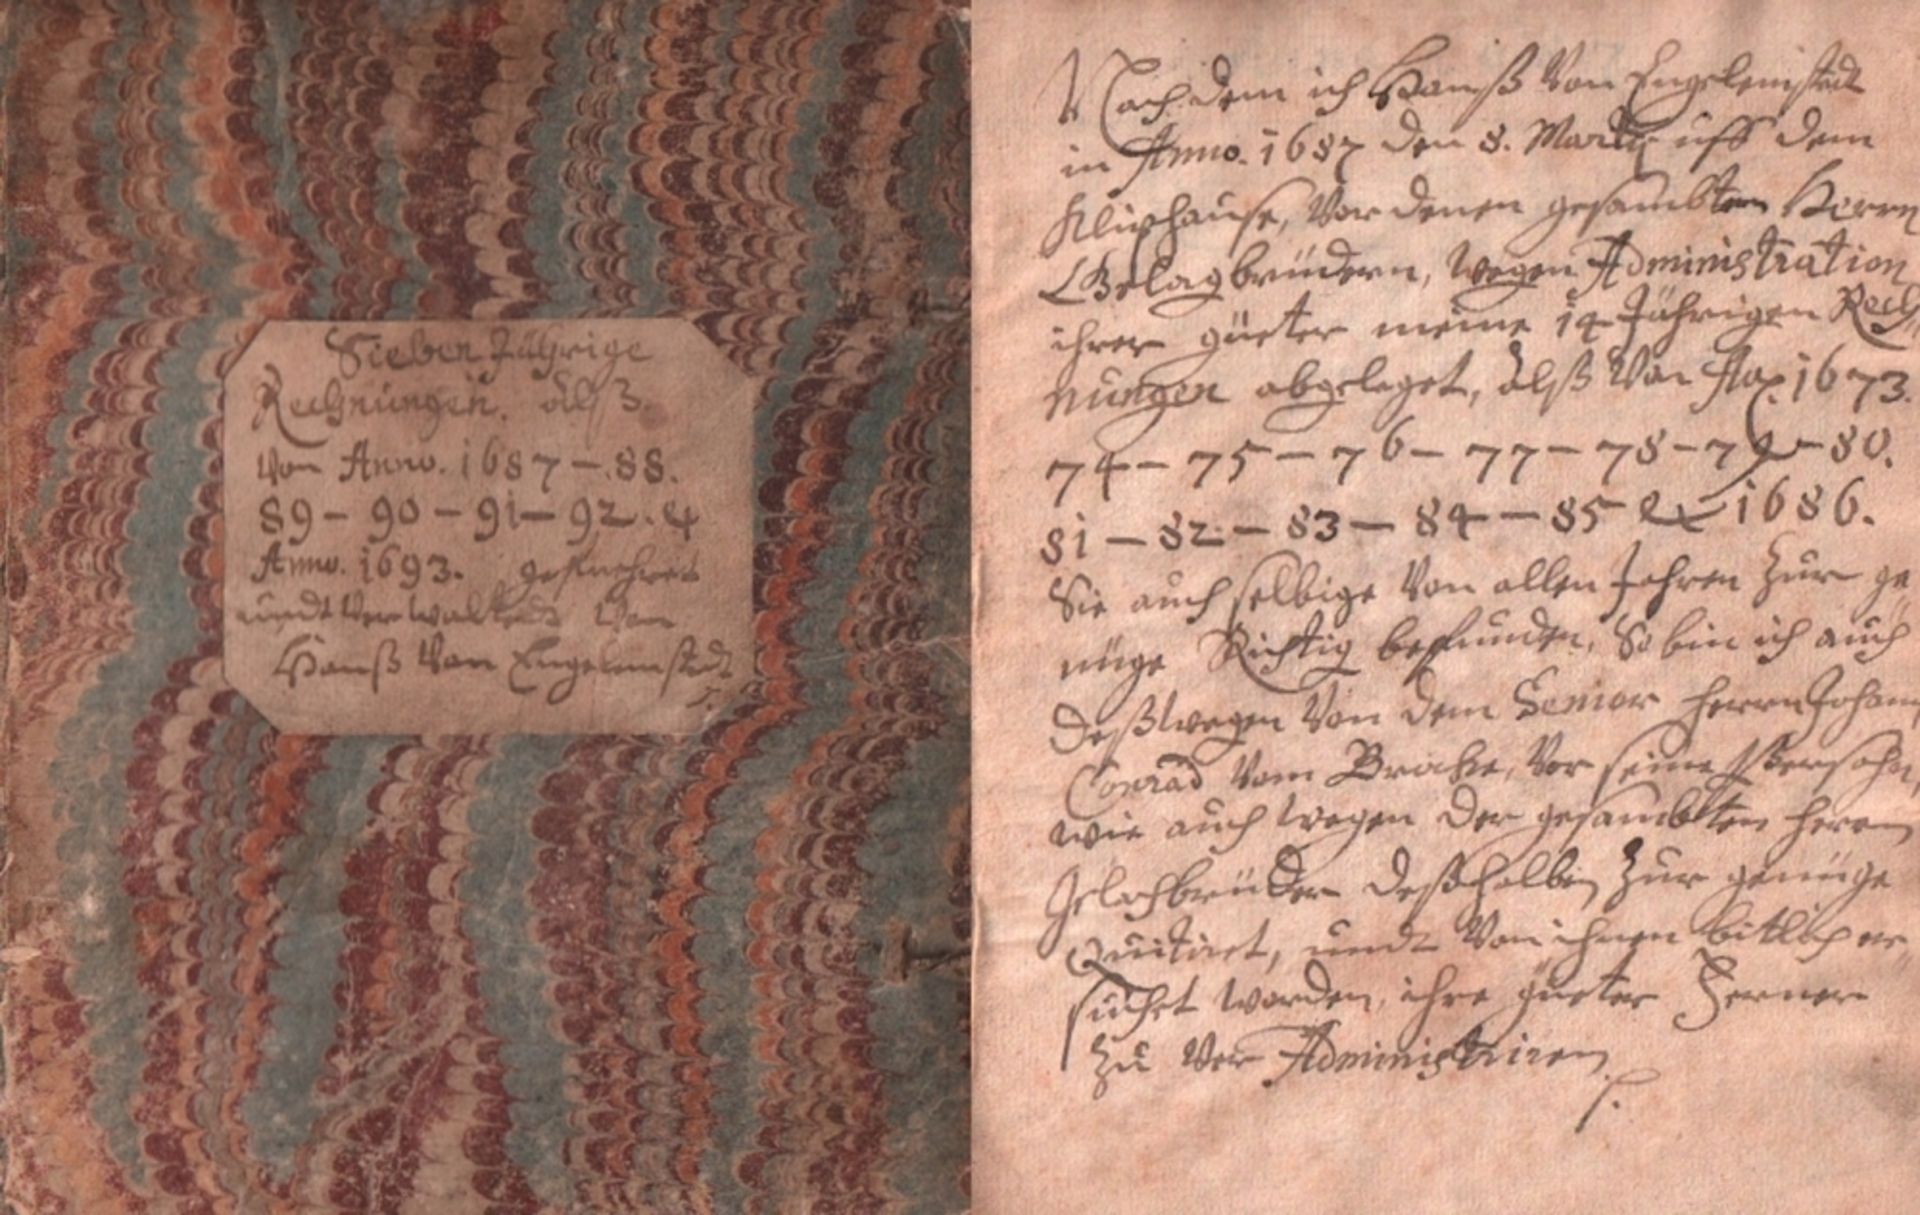 Sieben Jährige
Rechnüngen. alß.
Von Anno. 1687 – 88.
89 – 90 – 91 – 92. &
Anno. 1693. geführet
undt Verwaltedt Von
Hanß Von Engelemstedt
Nach dem ich Hanß Von Engelemstedt
in Anno. 1687 den 8. Marty uff dem
Kliphause, Vor denen gesambten Herrn
Gelagbrüdern, wegen Administration
ihrer güeter meine 14 Jährigen Rech,
nungen abgeleget, alß Von Ao. 1673.
74 – 75 – 76 – 77 – 78 – 79 – 80.
81 – 82 – 83 – 84 – 85 & 1686.
Sie auch selbige Von allen Jahren zur ge
nüge Richtig befunden, So bin ich auch
deßwegen Von dem Senior Herrn Johann
Conrad Vom Brocke, Vor seine Persohn,
wie auch wegen der gesambtten Herrn
Gelachbrüder deßhalben zur genüge
Quitiret, undt Von ihnen bittlich er,
suchet worden, ihre güeter Ferner
zu Ver Administriren